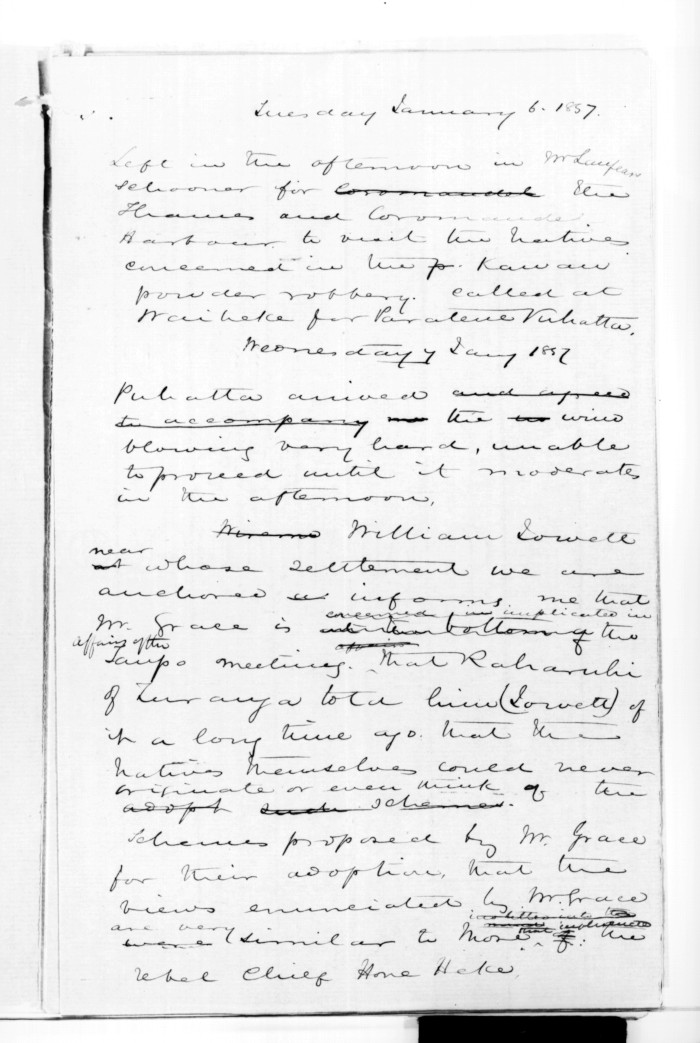 Tuesday January 6. 1857.
Left in the afternoon in Mr
schooner for Coromandel the
Thames and Coromandel
Harbour to visit the Natives
concerned in the p. Kawau
powder robbery. called at
Waiheke for Paratene Puhatta.
Wednesday 7 Jany 1857
Puhatta arrived and agreed
to accompany me the wind
blowing very hard, unable
to proceed until it moderates
in the afternoon.
Wiremu William Jowett
near
at whose settlement we are
anchored informs me that
concerned in implicated in
Mr. Grace is at the bottom of the
affairs of the
Taupo meeting. That Kaharuhi
of Turanga told him (Jowett) of
it a long time ago. that the
Natives themselves could never
originate or even think of the
adopt such schemes.
schemes proposed by Mr. Grace
for their adoption, that the
views enunciated by Mr. Grace
are very
were (similar to those of the
rebel Chief Hone Heke.